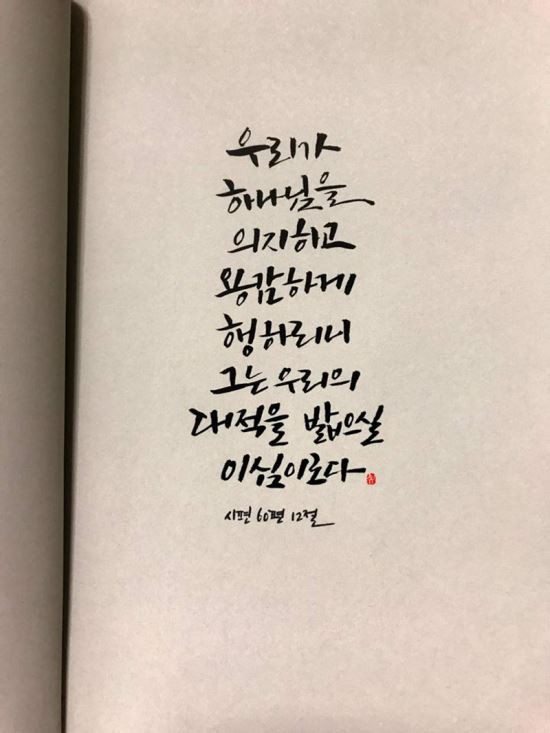 우리가
하나님을
의지하고
용감하게
행하리니
그는 우리의
대적을 밟으실
이심이로다
시편 60편 12절